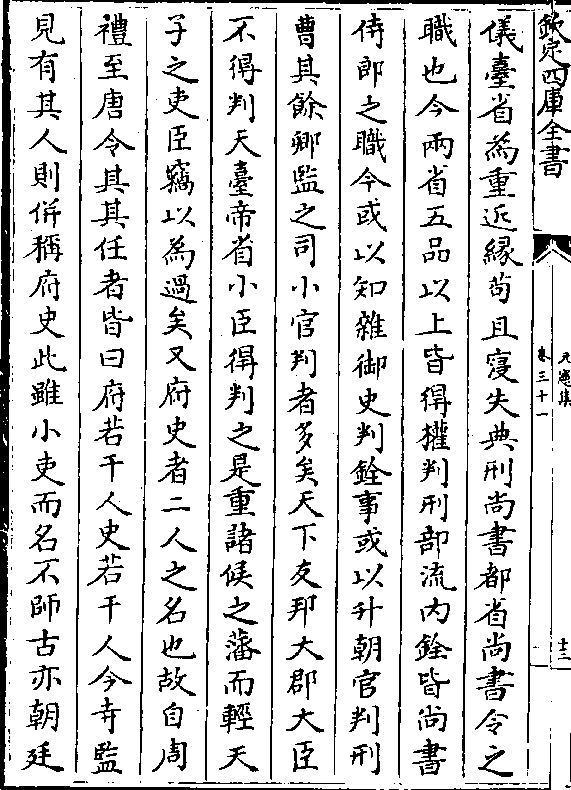 欽定四庫全書
元憲集
卷三十一
十二
儀臺省為重近緣苟且寖失典刑尚書都省尚書令之
職也今兩省五品以上皆得權判刑部流內銓皆尚書
侍郎之職今或以知雜御史判銓事或以升朝官判刑
曹其餘卿監之司小官判者多矣天下友邦大郡大臣
不得判天臺帝省小臣得判之是重諸候之藩而輕天
子之吏臣竊以為過矣又府史者二人之名也故自周
禮至唐令其其任者皆曰府若干人史若干人今寺監
見有其人則併稱府史此雖小吏而名不師古亦朝廷